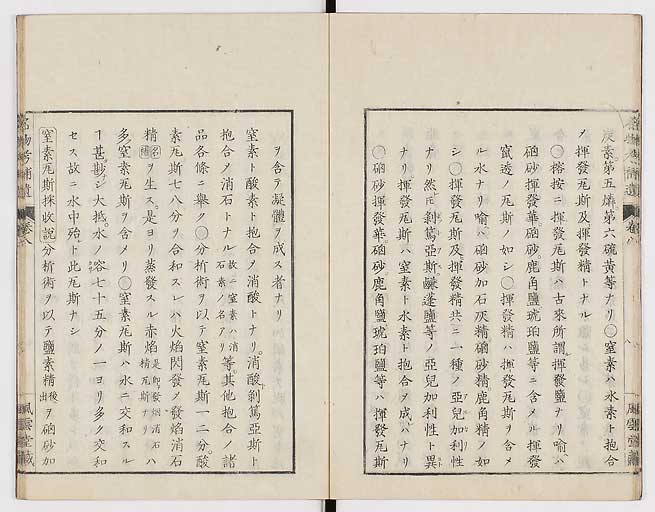 炭素第五燐第六硫黄等ナリ○窒素ハ水素ト抱合
ノ揮發瓦斯及揮發精トナル
○榕按ニ揮發瓦斯ハ古來所謂揮發鹽ナリ喩ハ
硇砂揮發華硇砂鹿角鹽琥珀鹽等ニ含メル揮發
竄透ノ瓦斯ノ如シ○揮發精ハ揮發瓦斯ヲ含メ
ル水ナリ喩ハ硇砂加石灰精硇砂精鹿角精ノ如
シ○揮發瓦斯及揮發精共ニ一種ノ亞兒加利性
ナリ然𪜈剝篤亞斯鹹蓬鹽等ノ亞兒加利性ト異
ナリ揮發瓦斯ハ窒素ト水素ト抱合ノ成ハナリ
○硇砂揮發華硇砂鹿角鹽琥珀鹽等ハ揮發瓦斯
ヲ含テ凝體ヲ成ス者ナリ
窒素ト酸素ト抱合ノ消酸トナリ消酸剝篤亞斯ト
抱合ノ消石トナル故ニ窒素ハ消石素ノ名アリ等其他抱合ノ諸
品各條ニ擧ク○分析術ヲ以テ窒素瓦斯一二分酸
素瓦斯七八分ヲ合和スレハ火焰閃發ノ發焰消石
精名精ヲ生ス是ヨリ蒸發スル赤焰是即發烟消石精瓦斯ナリハ
多窒素瓦斯ヲ含メリ○窒素瓦斯ハ水ニ交和スル
ヿ甚尠シ大抵水ノ容七十五分ノ一ヨリ多ク交和
セス故ニ水中殆ト此瓦斯ナシ
窒素瓦斯採收説分析術ヲ以テ鹽素精後出ヲ硇砂加
名物考補遺 卷八 風雲堂藏